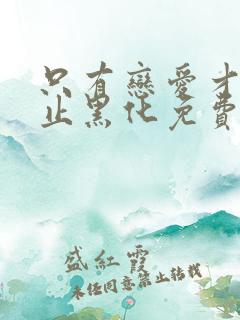 只有戀愛才
止黑化免費
盛紅霞
未经同意禁止转载